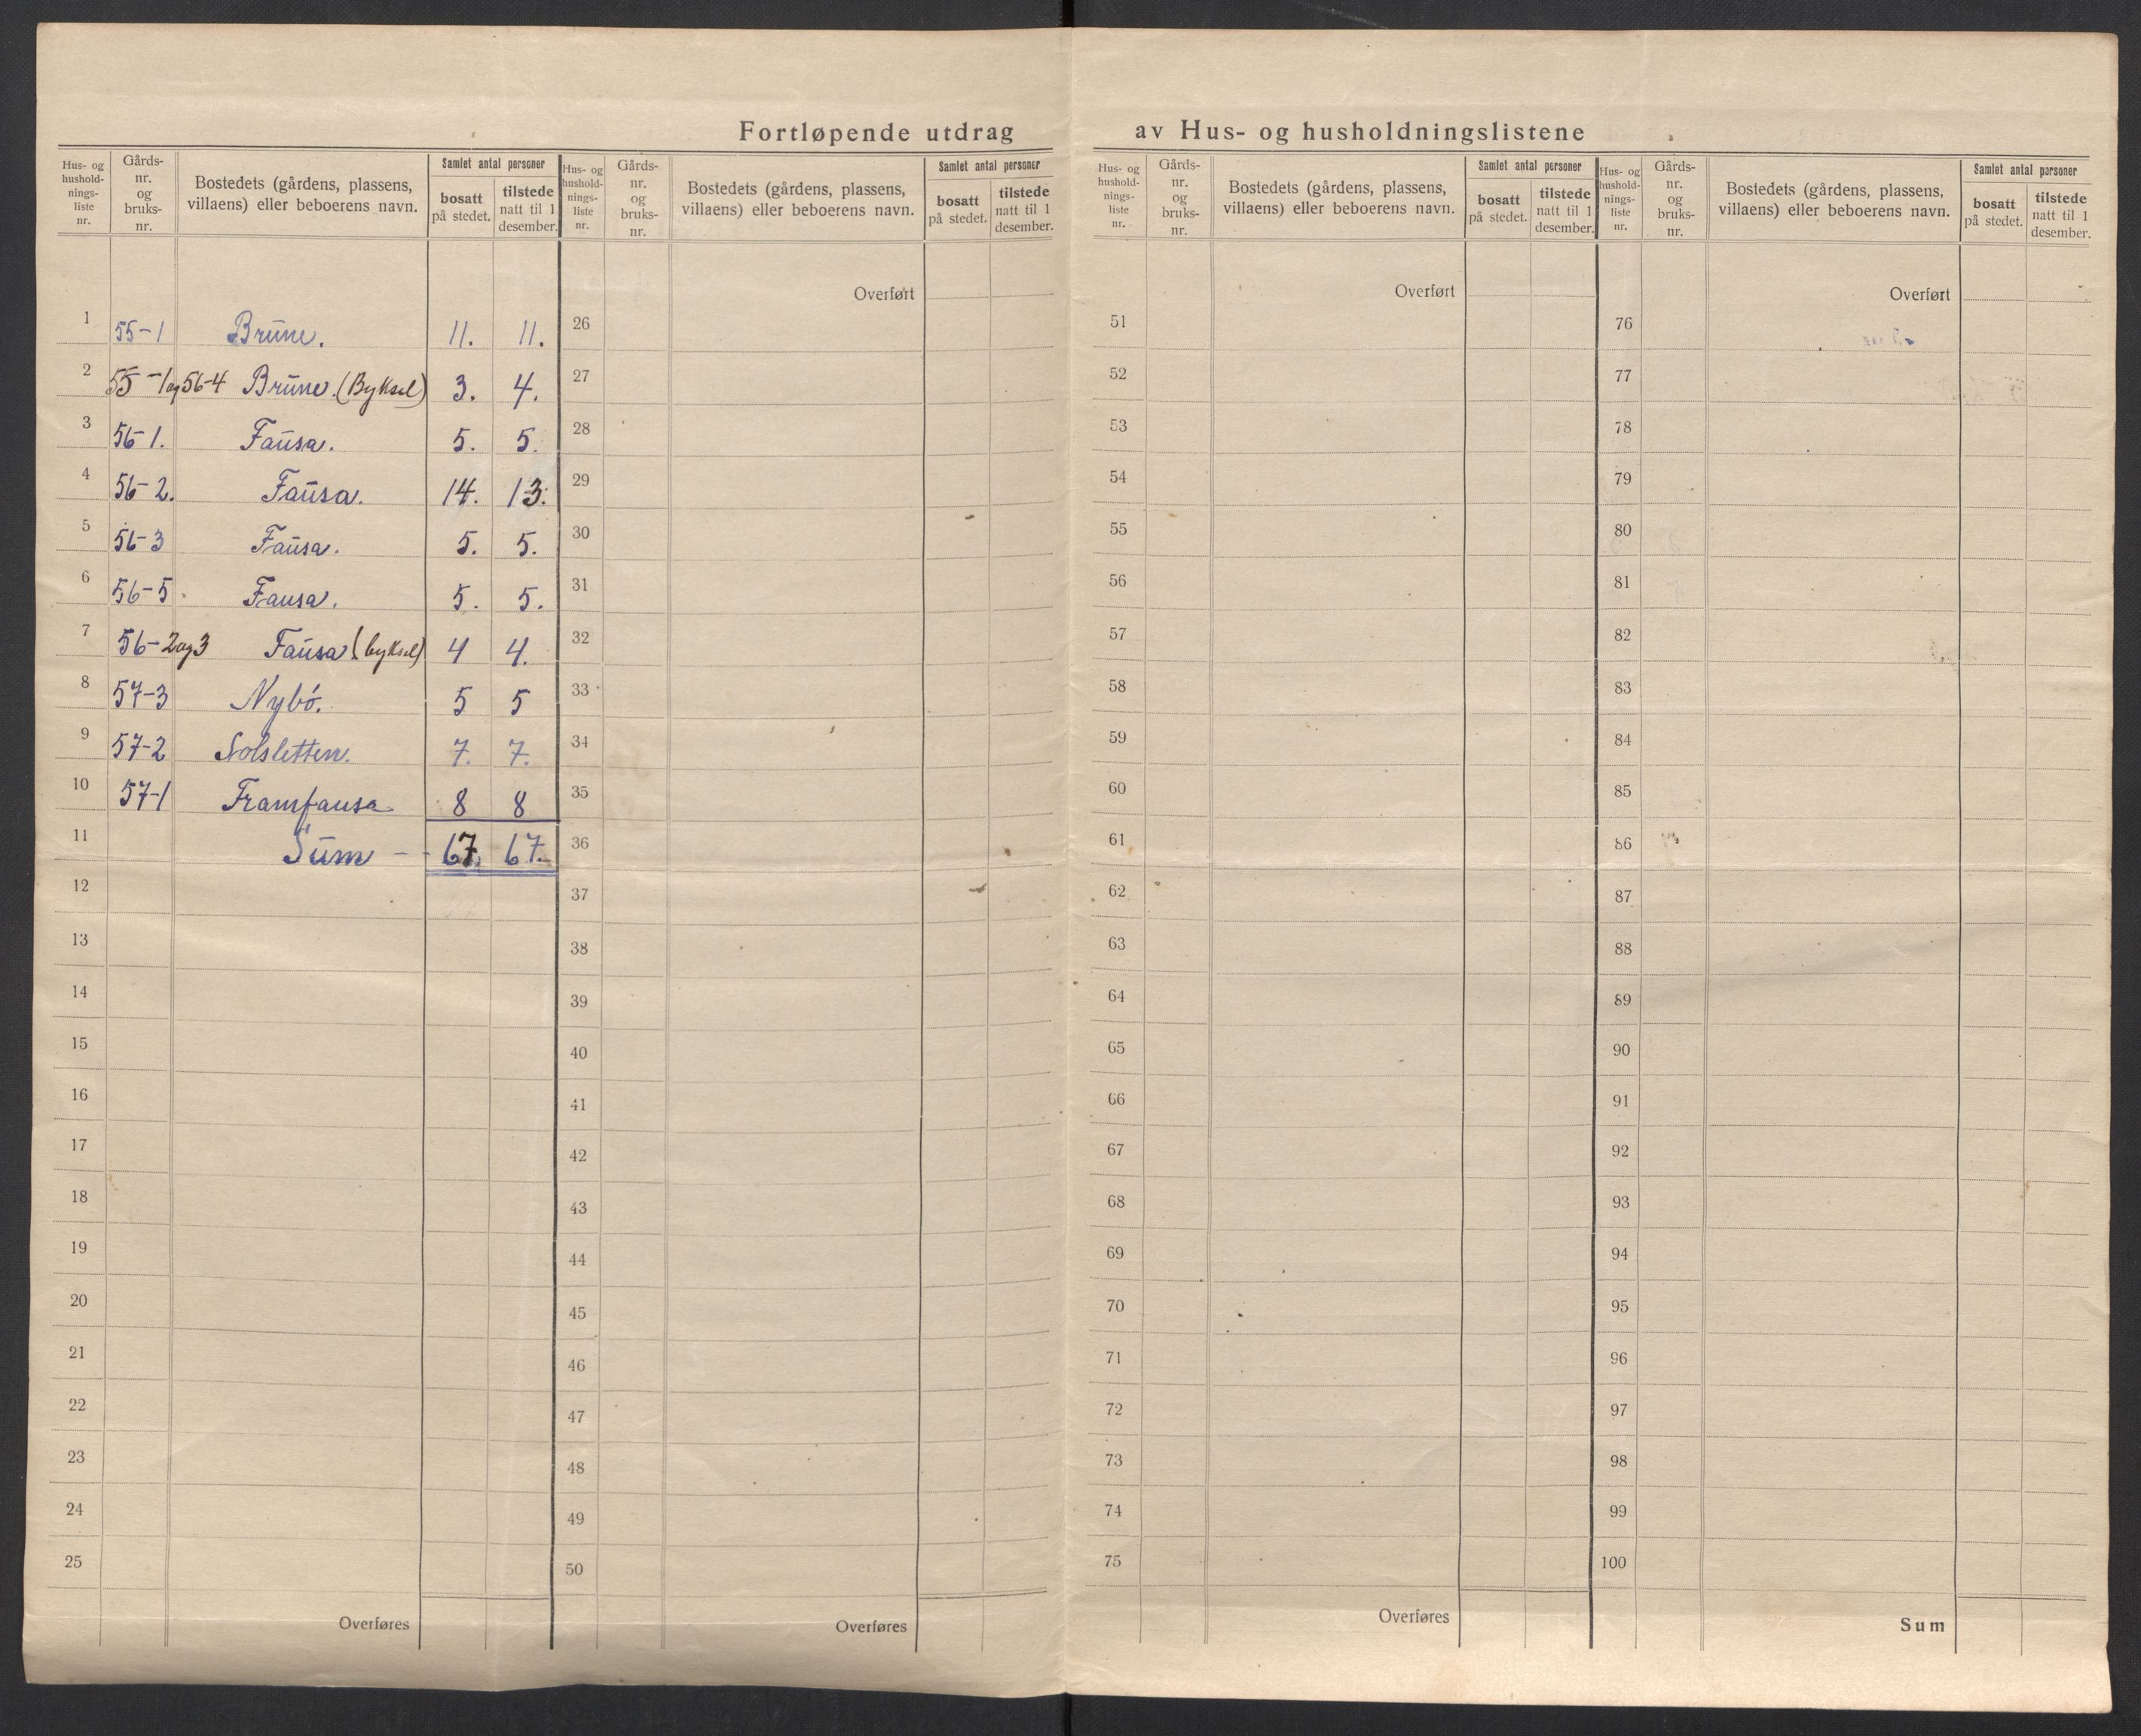 Fortløpende utdrag av Hus- og husholdningslistene
Hus- og husholdnings-liste nr. Gårds-nr. og bruks-nr. Bostedets (gårdens, plassens, villaens) eller beboerens navn. Samlet antal personer bosatt på stedet. tilstede natt til 1 desember.
1 55-1 Brūne. 11. 11.
2 55-1og56-4 Brūne.(Byksel) 3. 4.
3 56-1. Faūsa. 5. 5.
4 56-2. Faūsa. 14. 13.
5 56-3 Faūsa. 5. 5.
6 56-5. Fausa. 5. 5.
7 56-2og3 Faūsa(byksel) 4 4.
8 57-3 Nybó. 5 5
9 57-2 Solsletten. 7. 7.
10 57-1 Framfausa 8 8
11 Sūm - 67. 67.
12
13
14
15
16
17
18
19
20
21
22
23
24
25
Overføres
Hus- og husholdnings-liste nr. Gårds-nr. og bruks-nr. Bostedets (gårdens, plassens, villaens) eller beboerens navn. Samlet antal personer bosatt på stedet. tilstede natt til 1 desember.
Overført
26
27
28
29
30
31
32
33
34
35
36
37
38
39
40
41
42
43
44
45
46
47
48
49
50
Overføres
Hus- og husholdnings-liste nr. Gårds-nr. og bruks-nr. Bostedets (gårdens, plassens, villaens) eller beboerens navn. Samlet antal personer bosatt på stedet. tilstede natt til 1 desember.
Overført
51
52
53
54
55
56
57
58
59
60
61
62
63
64
65
66
67
68
69
70
71
72
73
74
75
Overføres
Hus- og husholdnings-liste nr. Gårds-nr. og bruks-nr. Bostedets (gårdens, plassens, villaens) eller beboerens navn. Samlet antal personer bosatt på stedet. tilstede natt til 1 desember.
Overført
76
77
78
79
80
81
82
83
84
85
86
87
88
89
90
91
92
93
94
95
96
97
98
99
100
Sum